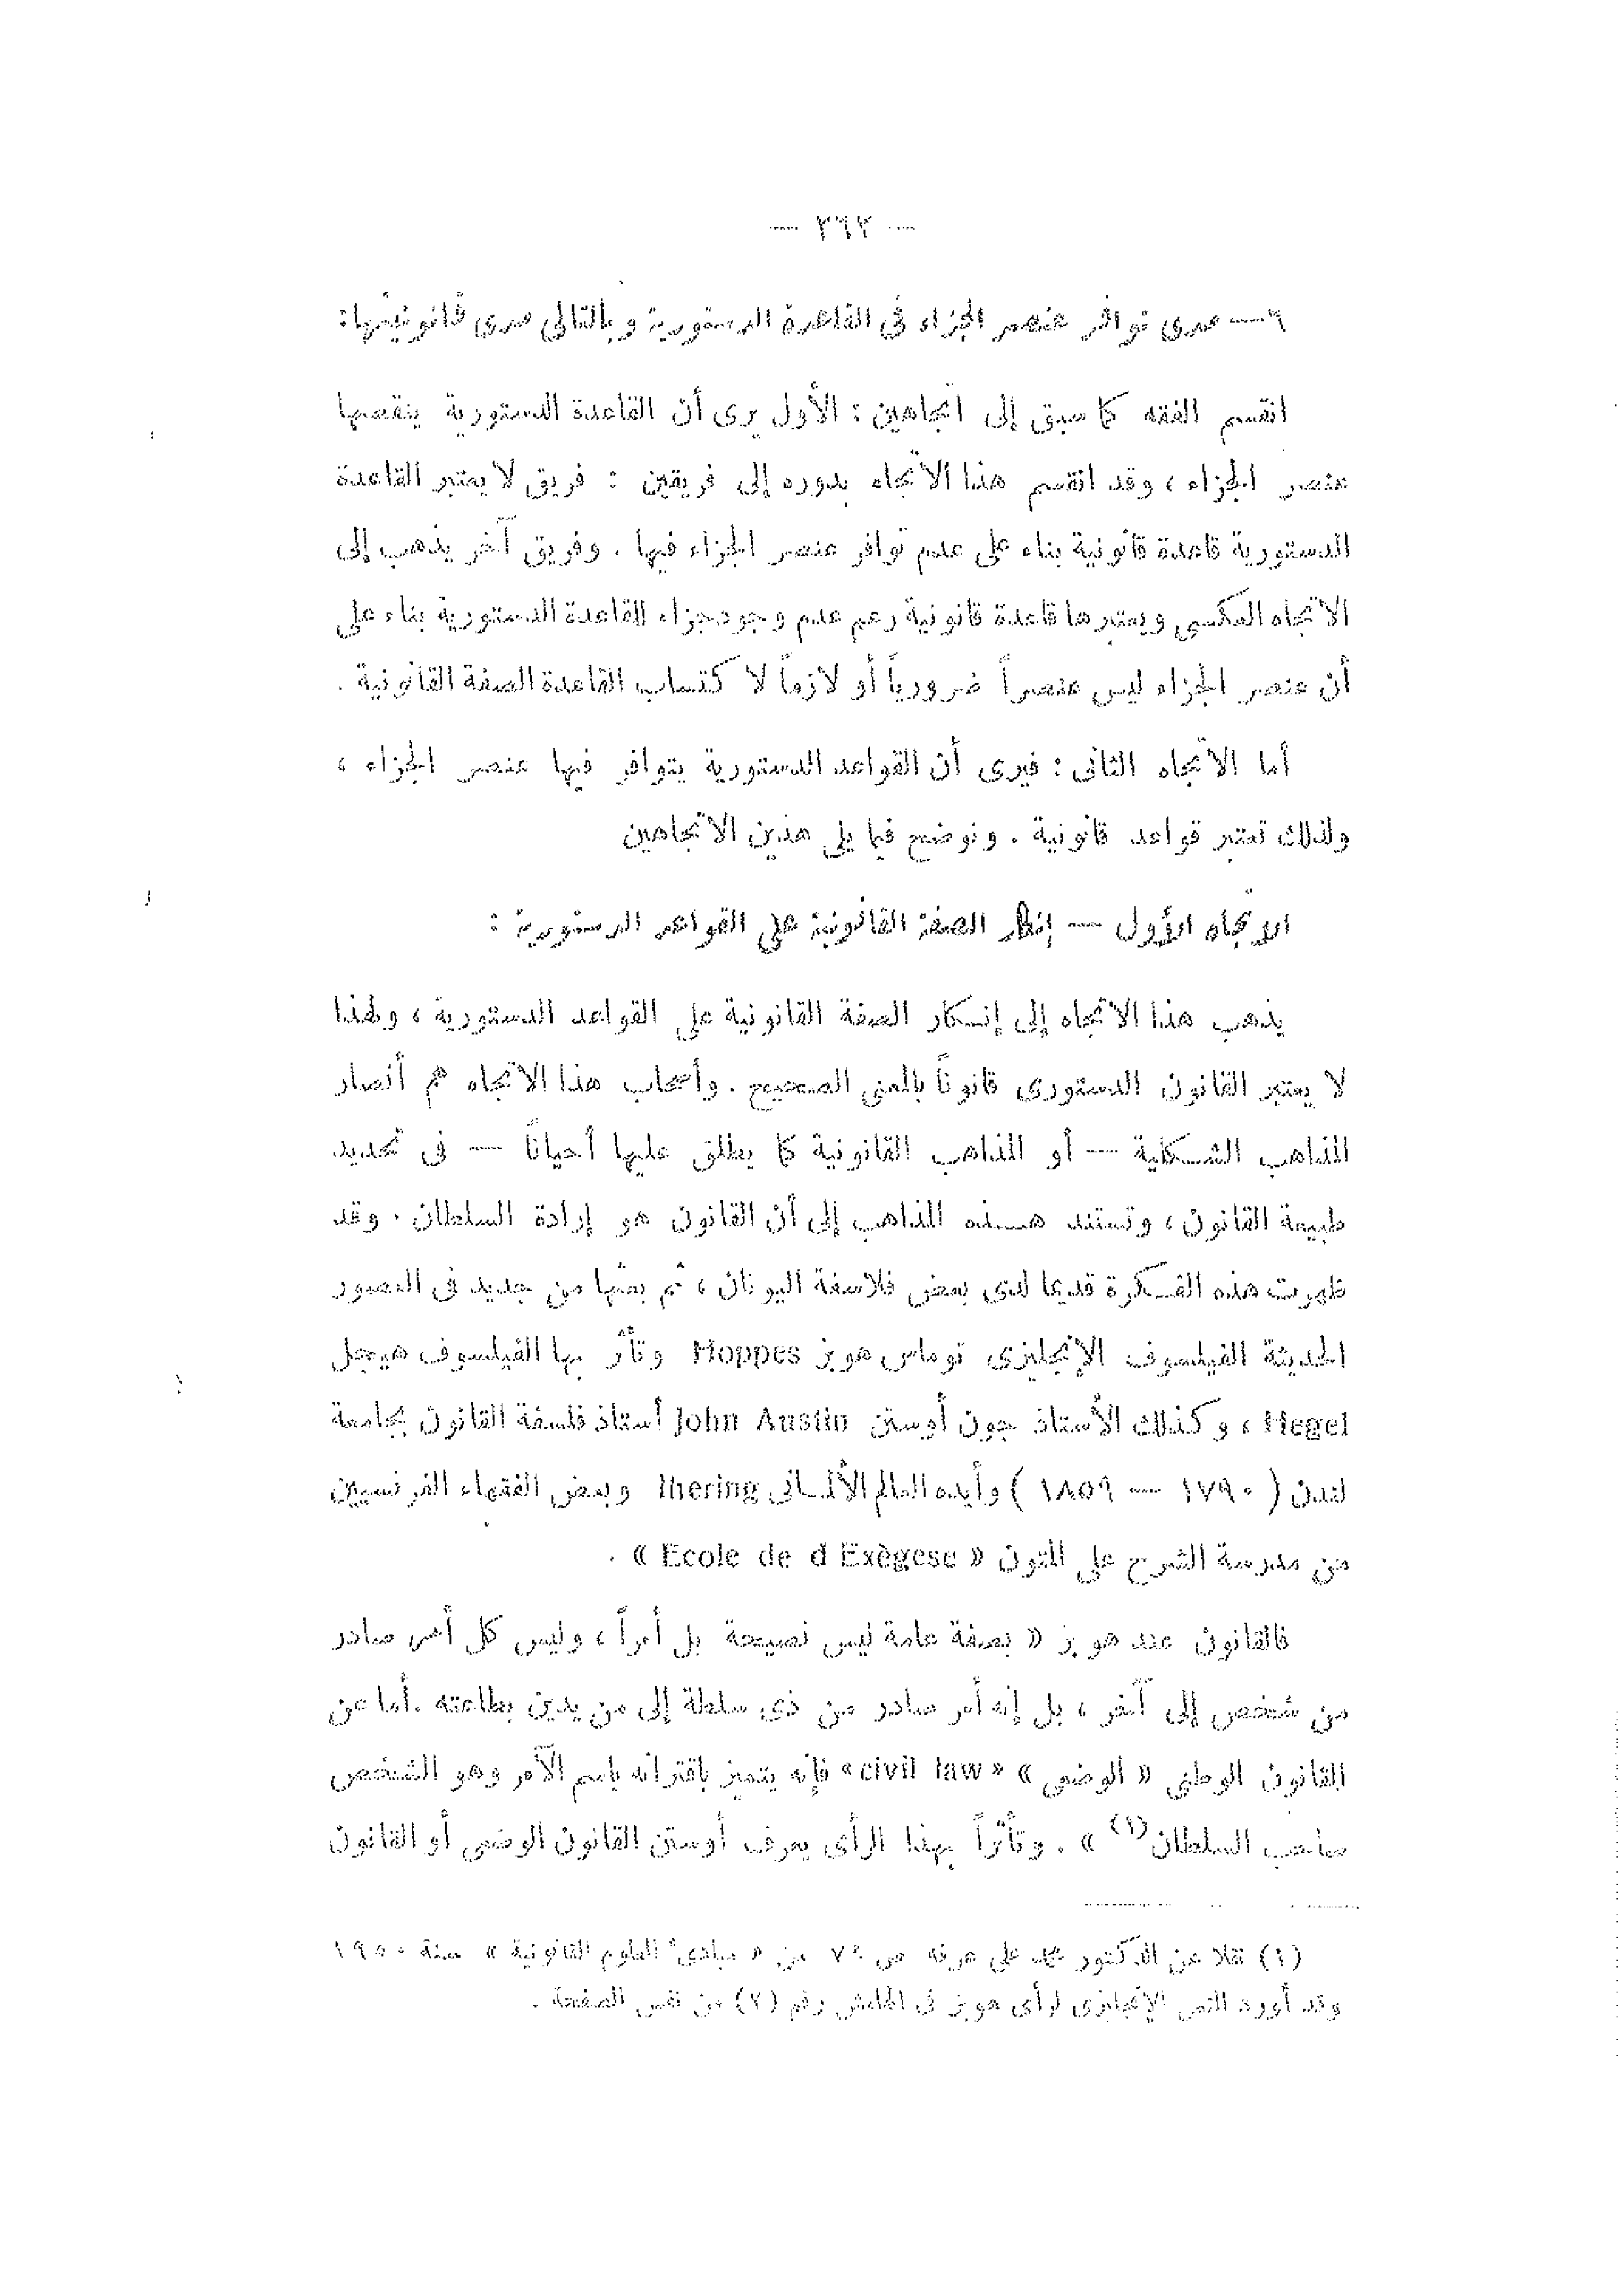 — ٣٦٢ —
٦ — مدى توافر عنصر الجزاء فى القاعدة الدستورية وبالتالى مدى قانونيتها :
انقسم الفقه كما سبق إلى اتجاهين : الأول يرى أن القاعدة الدستورية ينقصها
عنصر الجزاء ، وقد انقسم هذا الاتجاه بدوره إلى فريقين : فريق لا يعتبر القاعدة
الدستورية قاعدة قانونية بناء على عدم توافر عنصر الجزاء فيها . وفريق آخر يذهب إلى
الاتجاه العكسى ويعتبرها قاعدة قانونية رغم عدم وجود جزاء للقاعدة الدستورية بناء على
أن عنصر الجزاء ليس عنصراً ضرورياً أو لازماً لا كتساب القاعدة الصفة القانونية .
أما الاتجاه الثانى : فيرى أن القواعد الدستورية يتوافر فيها عنصر الجزاء ،
ولذلك تعتبر قواعد قانونية . ونوضح فيما يلى هذين الاتجاهين
الاتجاه الأول — إنكار الصفة القانونية على القواعد الدستورية :
يذهب هذا الاتجاه إلى إنكار الصفة القانونية على القواعد الدستورية ، ولهذا
لا يعتبر القانون الدستورى قانوناً بالمعنى الصحيح . وأصحاب هذا الاتجاه هم أنصار
المذاهب الشكلية — أو المذاهب القانونية كما يطلق عليها أحياناً — فى تحديد
طبيعة القانون ، وتستند هذه المذاهب إلى أن القانون هو إرادة السلطان . وقد
ظهرت هذه الفكرة قديما لدى بعض فلاسفة اليونان ، ثم بعثها من جديد فى العصور
الحديثة الفيلسوف الإنجليزى توماس هوبز Hoppes وتأثر بها الفيلسوف هيجل
Hegel ، وكذلك الأستاذ جون أوستن John Austin أستاذ فلسفة القانون بجامعة
لندن ( ١٧٩٠ — ١٨٥٩ ) وأيده العالم الألمانى Ihering وبعض الفقهاء الفرنسيين
من مدرسة الشرح على المتون « Ecole de d Exègese » .
فالقانون عند هوبز « بصفة عامة ليس نصيحة بل أمراً ، وليس كل أمر صادر
من شخص إلى آخر ، بل إنه أمر صادر من ذى سلطة إلى من يدين بطاعته . أما عن
القانون الوطنى « الوضعى » «civil law» فإنه يتميز باقترانه باسم الآمر وهو الشخص
صاحب السلطان (١) » . وتأثراً بهذا الرأى يعرف أوستن القانون الوضعى أو القانون
(١) نقلا عن الدكتور محمد على عرفه ص من « مبادئ العلوم القانونية » سنة ١٩٥٠
وقد أورد النص الإنجليزى لرأى هوبز فى الهامش رقم (٢) من نفس الصفحة .